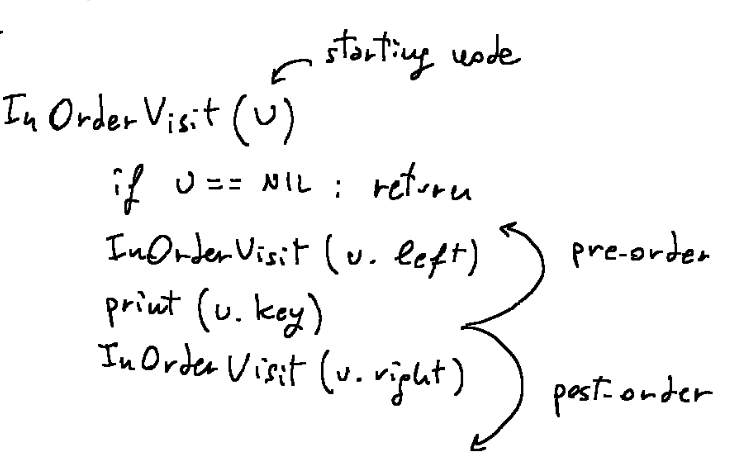 starting node
InOrderVisit (v)
if v == NIL : return
InOrderVisit (v. left)
pre-order
print (v. key)
InOrderVisit (v. right)
post-order